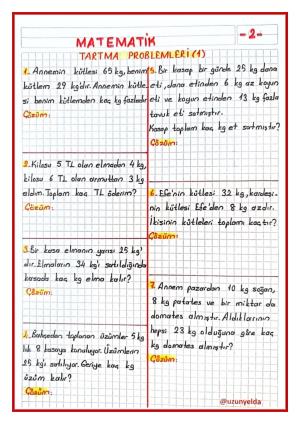 MATEMATİK
-2-
TARTMA PROBLEMLERİ(1)
1. Annemin kütlesi 65 kg, benim
kütlem 29 kg'dır. Annemin kütle
si, benim kütlemden kaç kg fazladır
Çözüm:
2. Kilosu 5 TL olan elmadan 4 kg,
kilosu 6 TL olan armuttan 3 kg
aldım. Toplam kaç TL öderim?
Çözüm:
3. Bir kasa elmanın yarısı 25 kg'
dır. Elmaların 34 kg'ı satıldığında
kasada kaç kg elma kalır?
Çözüm:
4. Bahçeden toplanan üzümler 5 kg
lık 8 kasaya konuluyor. Üzümlerin
25 kg'ı satılıyor. Geriye kaç kg
üzüm kalır?
Çözüm:
5. Bir kasap bir günde 25 kg dana
eti, dana etinden 6 kg az koyun
eti ve koyun etinden 13 kg fazla
tavuk eti satmıştır.
Kasap toplam kaç kg et satmıştır?
Çözüm:
6. Efe'nin kütlesi 32 kg, kardeşi-
nin kütlesi Efe'den 8 kg azdır.
İkisinin kütleleri toplamı kaçtır?
Çözüm:
7. Annem pazardan 10 kg soğan,
8 kg patates ve bir miktar da
domates almıştır. Aldıklarının
hepsi 23 kg olduğuna göre kaç
kg domates almıştır?
Çözüm:
@uzunyelda